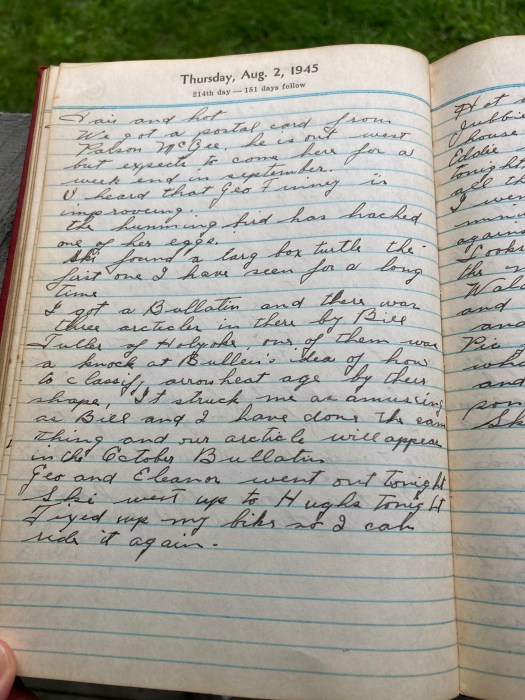 Thursday, Aug. 2, 1945
214th day — 151 days follow
Fair and hot
We got a postal card from
McGee, he is out west
but expects to come here for a
week end in september.
I heard that Geo Finney is
improving.
the humming bird has hacked
one of her eggs.
Ski found a larg box turtle the
first one I have seen for a long
time
I got a Bullatin and there was
three arcticles in there by Bill
Fuller of Holyoke, one of them was
a knock at Bullen's idea of how
to classify arrowheat age by their
shape, It struck me as amusing
as Bill and I have done the same
thing and our arcticle will appear
in the October Bullatin
Geo and Eleanor went out tonight
Ski went up to Hughs tonight
Fixed up my bike so I can
ride it again.
Hot a
house
Eddie
tonight
all th
I wen
again
Looke
the n
Wal
and
and
Pic
who
and
pon
Sk